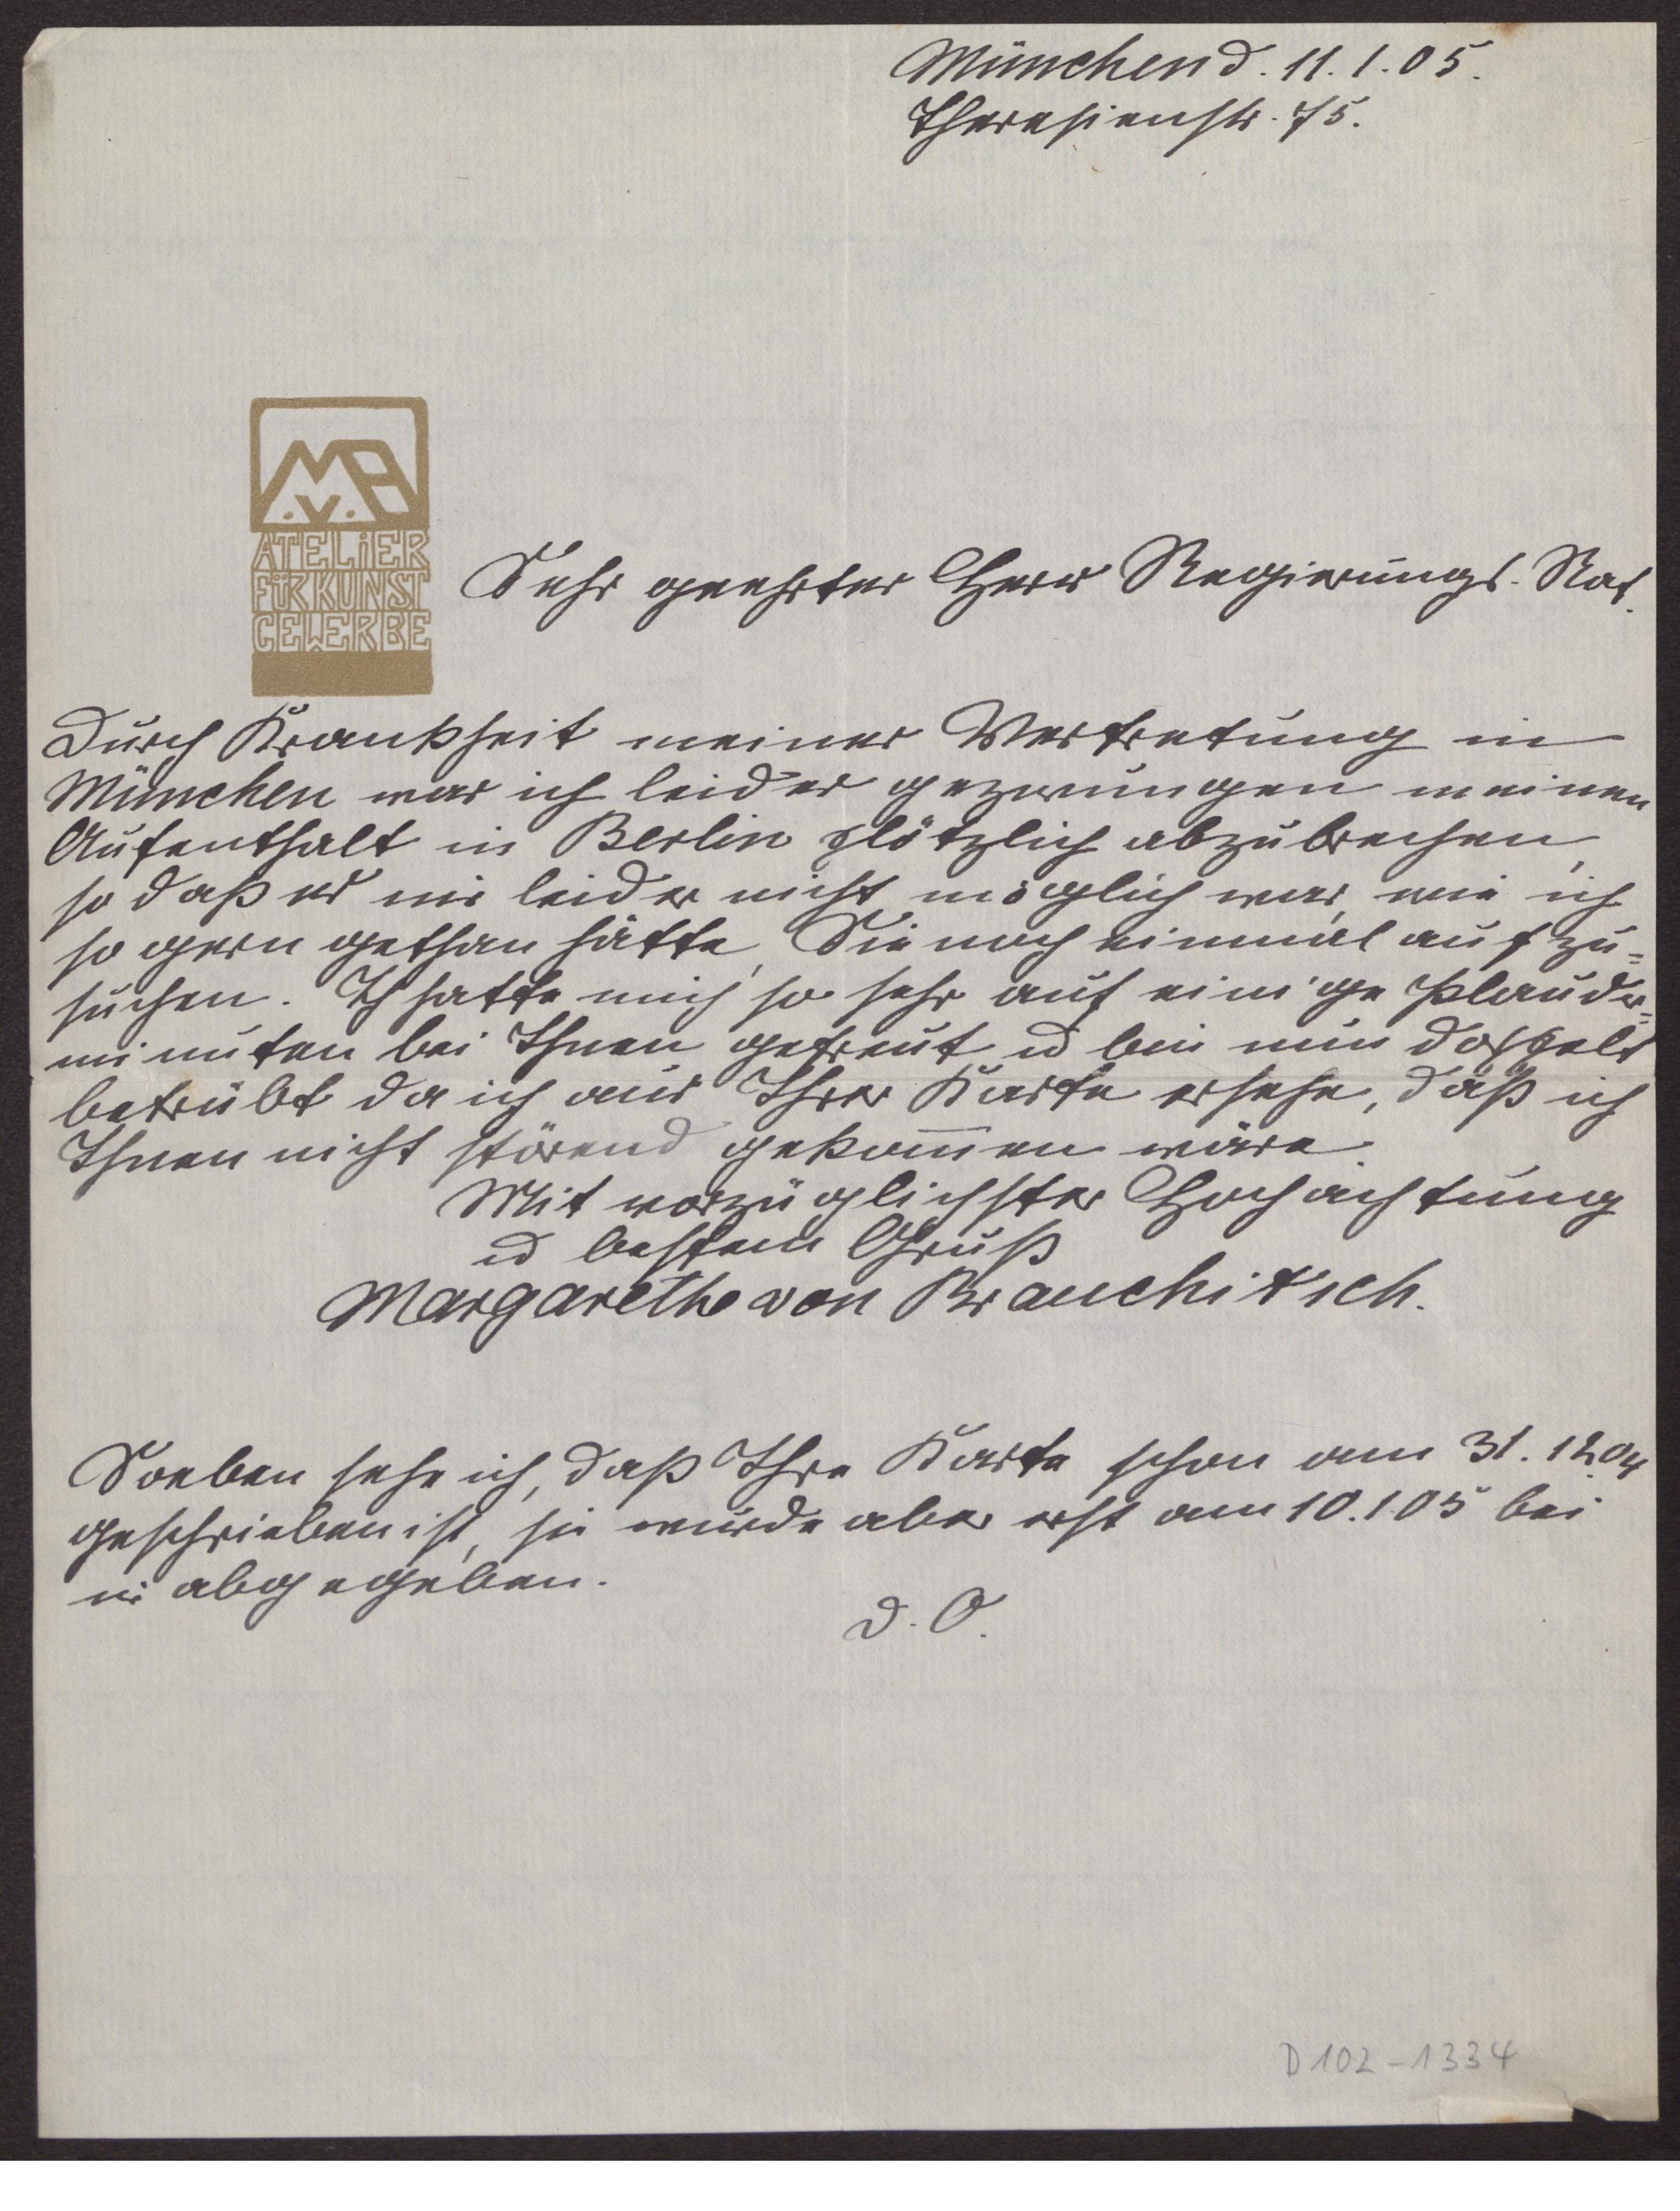 München d. 11. 1. 05.
Theresienstr. 75.
M.v.B
ATELiER
FÜR KUNST
GEWERBE
Sehr geehrter Herr Regierungs-Rat.
Durch Krankheit meiner Vertretung in
München war ich leider gezwungen meinen
Aufenthalt in Berlin plötzlich abzubrechen,
so daß es mir leider nicht möglich war, wie ich
so gern gethan hätte, Sie noch einmal aufzu=
suchen. Ich hatte mich so sehr auf einige Plauder=
minuten bei Ihnen gefreut u bin nun doppelt
betrübt da ich aus Ihrer Karte ersehe, daß ich
Ihnen nicht störend gekom̄en wäre.
Mit vorzüglichster Hochachtung
u bestem Gruß
Margarethe von Brauchitsch.
Soeben sehe ich, daß Ihre Karte schon am 31. 12.04
geschrieben ist, sie wurde aber erst am 10.1.05 bei
mir abgegeben.
D. O.
D 102 - 1334